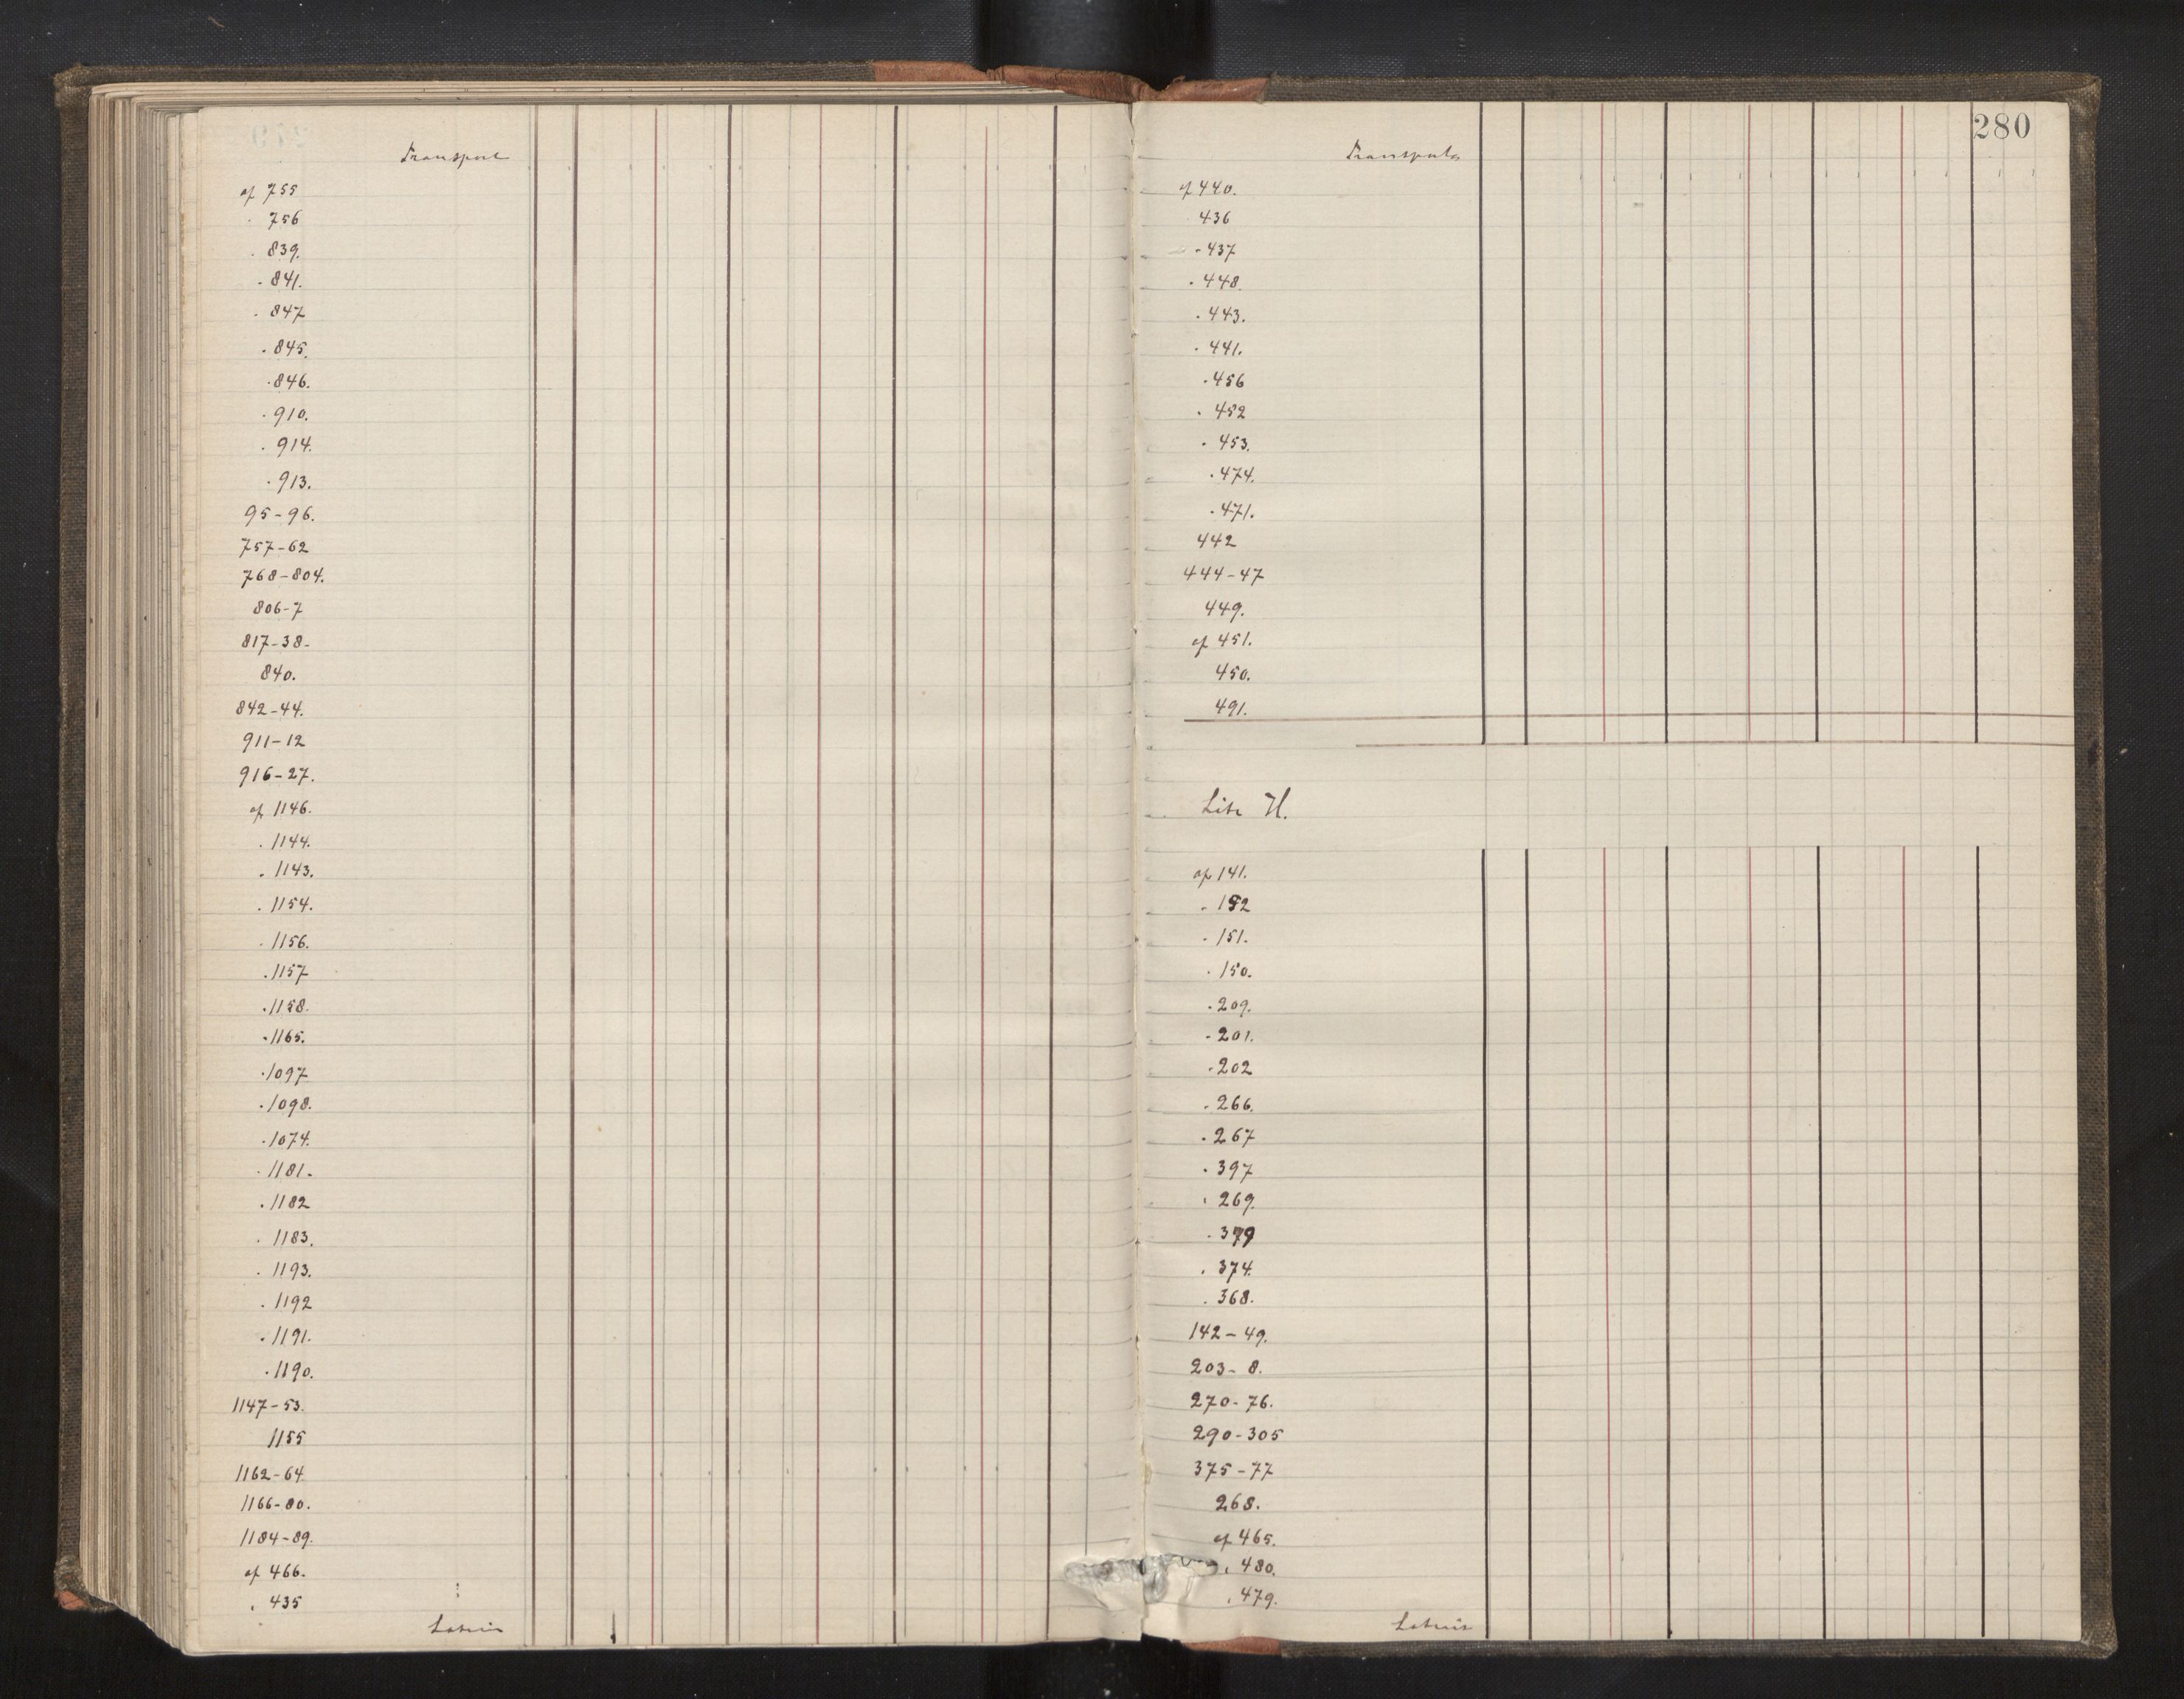 Transport
af 755
. 756
. 839.
. 841.
. 847
. 845.
. 846.
. 910.
. 914.
. 913.
95-96.
757-62
768-804.
806-7
817-38-
840.
842-44.
911-12
916-27.
af 1146.
. 1144.
. 1143.
. 1154.
. 1156.
. 1157
. 1158.
. 1165.
. 1097
. 1098.
. 1074.
. 1181.
. 1182
. 1183.
. 1193.
. 1192
. 1191.
. 1190.
1147-53.
1155
1162-64
1166-80.
1184-89.
af 466.
. 435
Lateris
280
Transport
af 440.
. 436
- 437
. 448.
. 443.
. 441.
. 456
. 452
. 453.
. 474.
. 471.
442
444-47
449.
af 451.
450.
491.
Litr H.
af 141.
. 152
. 151.
. 150.
. 209.
. 201.
. 202
. 266.
. 267
. 397
. 269.
. 379
. 374.
. 368.
142-49.
203-8.
270-76.
290-305
375-77
268.
af 465.
. 480.
. 479.
Lateris